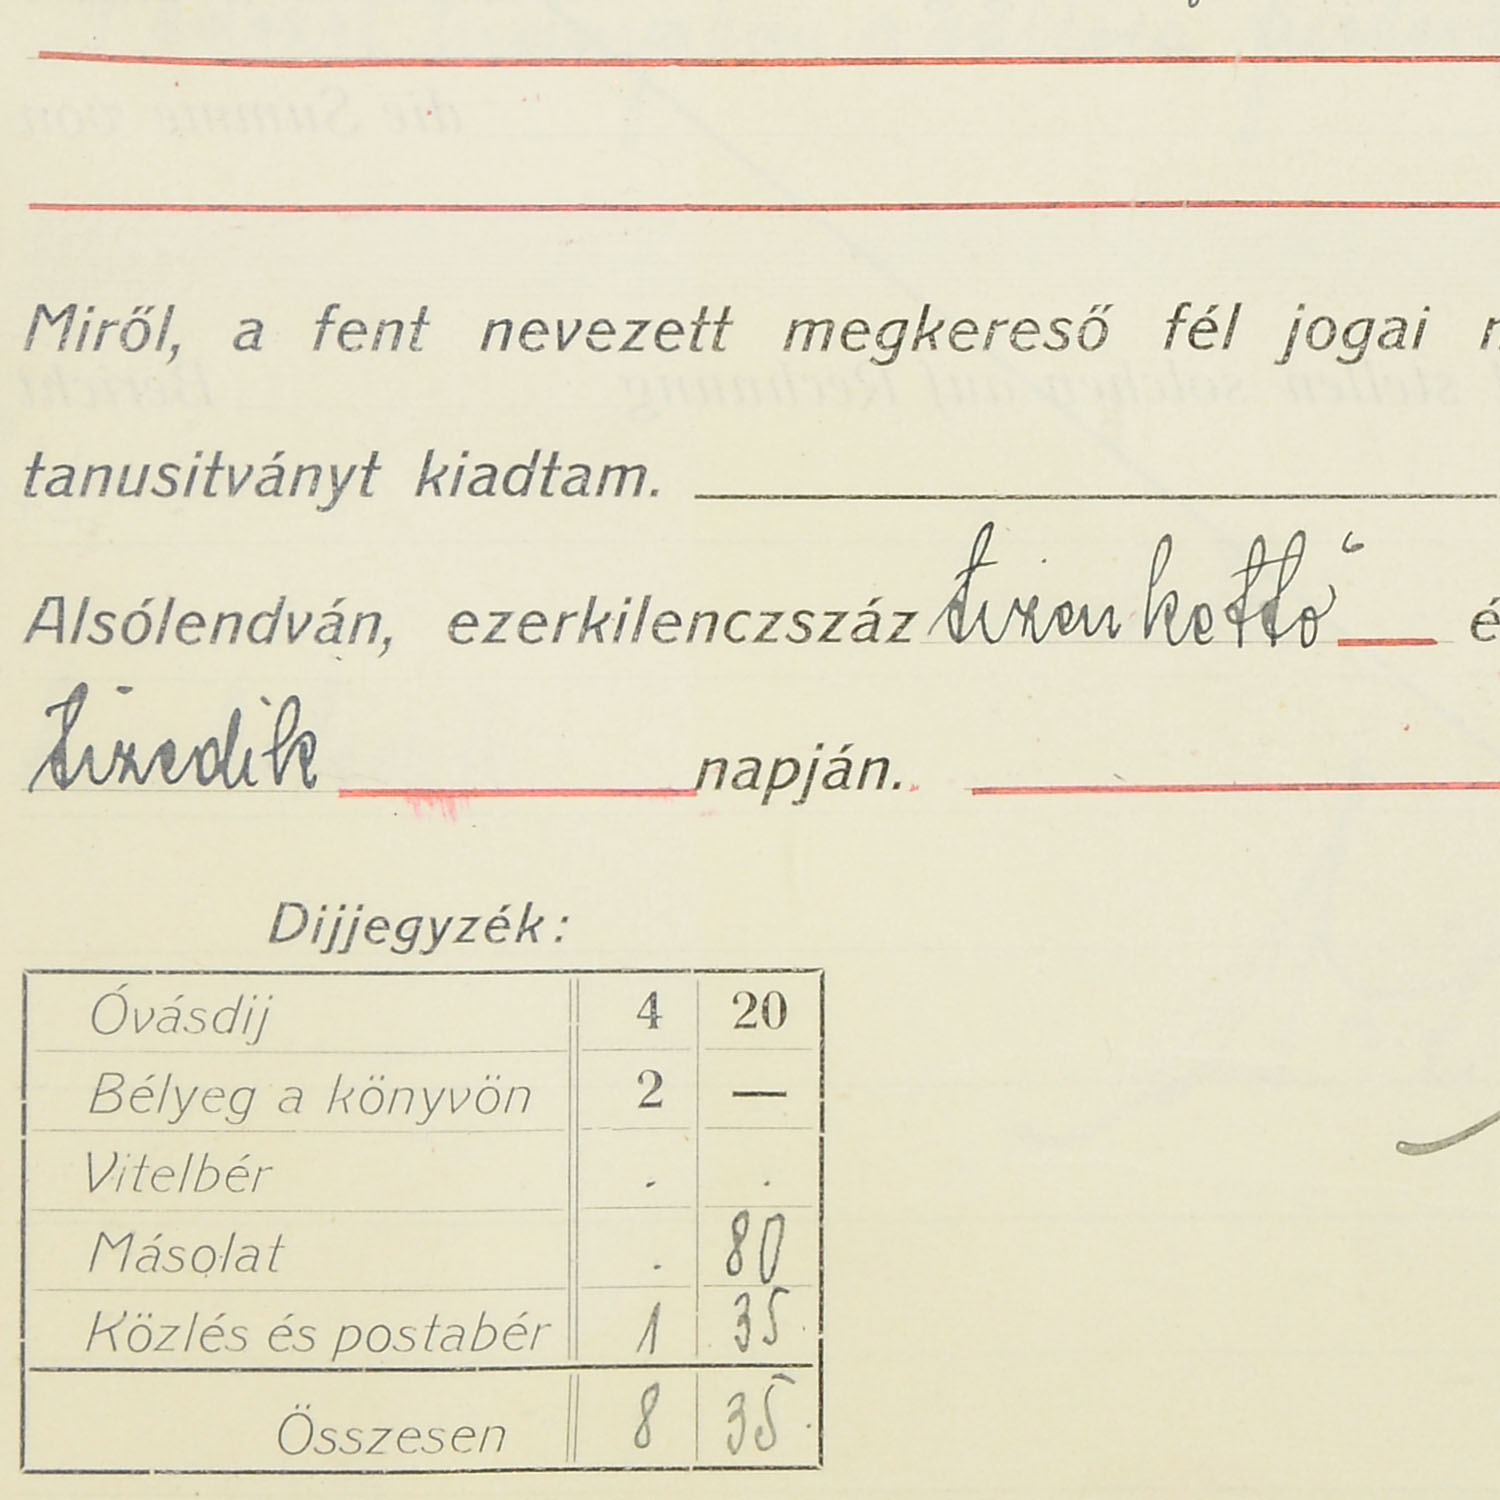 Miről, a fent nevezett megkereső fél jogai
tanusitványt kiadtam.
Alsólendván, ezerkilenczszáz tizenkettő
tizedik napján.
Dijjegyzék:
Óvásdij 4 20
Bélyeg a könyvön 2 —
Vitelbér . .
Másolat . 80
Közlés és postabér 1 35
Összesen 8 35